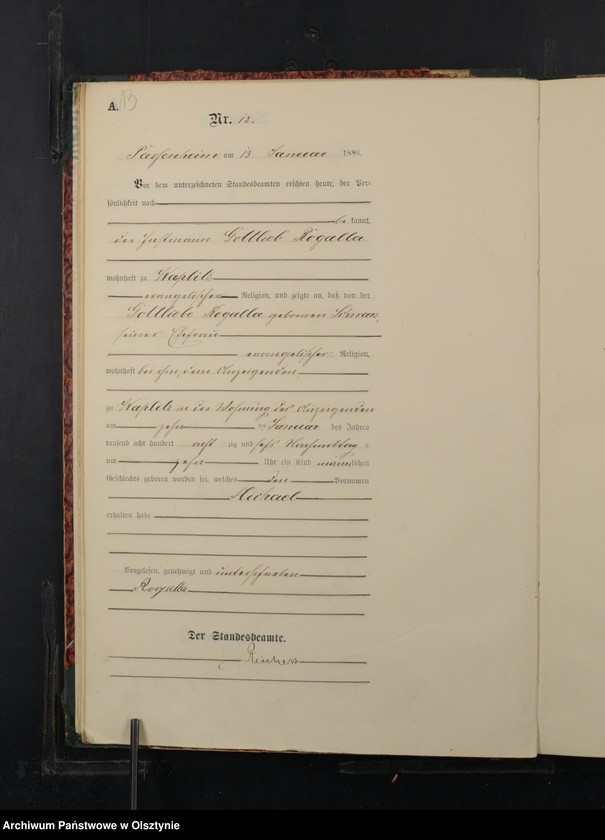 A. 13
Nr. 12.
Passenheim am 13 Januar 1886.
Vor dem unterzeichneten Standesbeamten erschien heute, der Per-
sönlichkeit nach
be kannt,
der Instmann Gottlieb Rogalla
wohnhaft zu Waplitz
evangelischer Religion, und zeigte an, daß von der
Gottliebe Rogalla geborenen
seiner Ehefrau
evangelischer Religion,
wohnhaft bei ihm, dem Anzeigenden,
zu Waplitz in der Wohnung des Anzeigenden
am zehn ten Januar des Jahres
tausend acht hundert acht zig und sechs Vormittag s
um zehn Uhr ein Kind männlichen
Geschlechts geboren worden sei, welches den Vornamen
Michael
erhalten habe
Vorgelesen, genehmigt und unterschrieben
Rogalla
Der Standesbeamte.
Archiwum Państwowe w Olsztynie